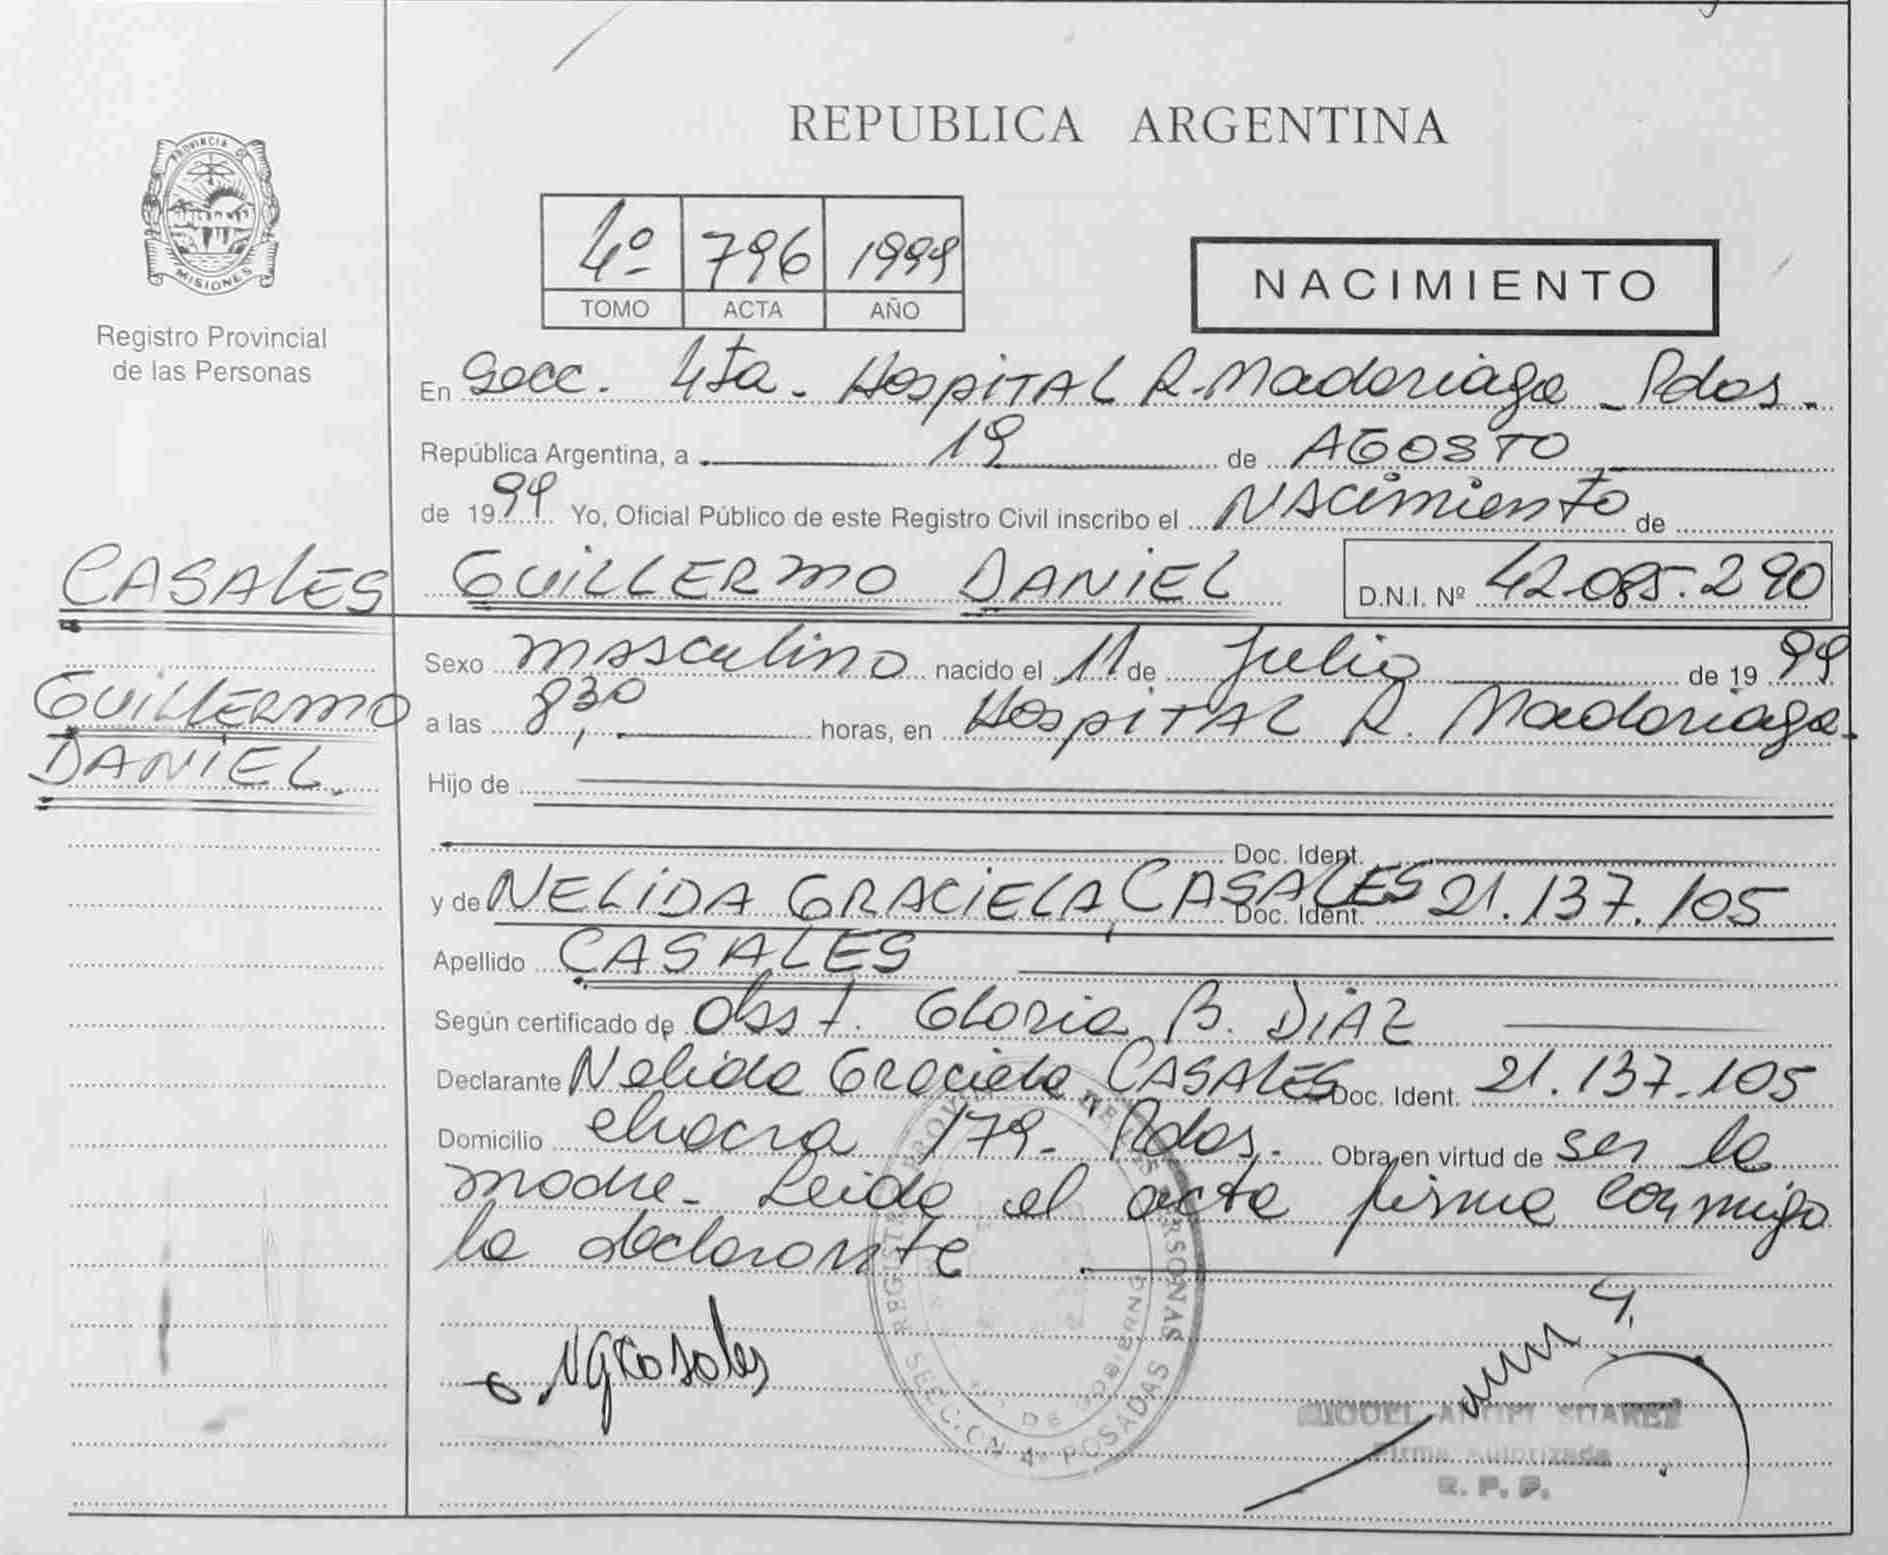 PROVINCIA DE
MISIONES
Registro Provincial
de las Personas
REPUBLICA ARGENTINA
4º 796 1999
TOMO ACTA AÑO
NACIMIENTO
En Secc. 4ta. Hospital R. Madariaga - Pdas.
República Argentina, a 19 de AGOSTO
de 1999 Yo, Oficial Público de este Registro Civil inscribo el Nacimiento de
CASALES GUILLERMO DANIEL D.N.I. Nº 42.085.290
GUILLERMO
DANIEL.
Sexo masculino nacido el 11 de Julio de 1999
a las 8,30 horas, en Hospital R. Madariaga.
Hijo de
Doc. Ident.
y de NELIDA GRACIELA, CASALES Doc. Ident. 21.137.105
Apellido CASALES
Según certificado de Obst. Gloria B. DIAZ
Declarante Nelida Graciela, CASALES Doc. Ident. 21.137.105
Domicilio chacra 179- Pdas.- Obra en virtud de ser la
madre- Leida el acta firma conmigo
la declarante
NGCasales
REGISTRO PROV. DE LAS PERSONAS
DE GOBIERNO
SECCION 4ª POSADAS
MIGUEL ANGEL SUAREZ
Firma Autorizada
R. P. P.